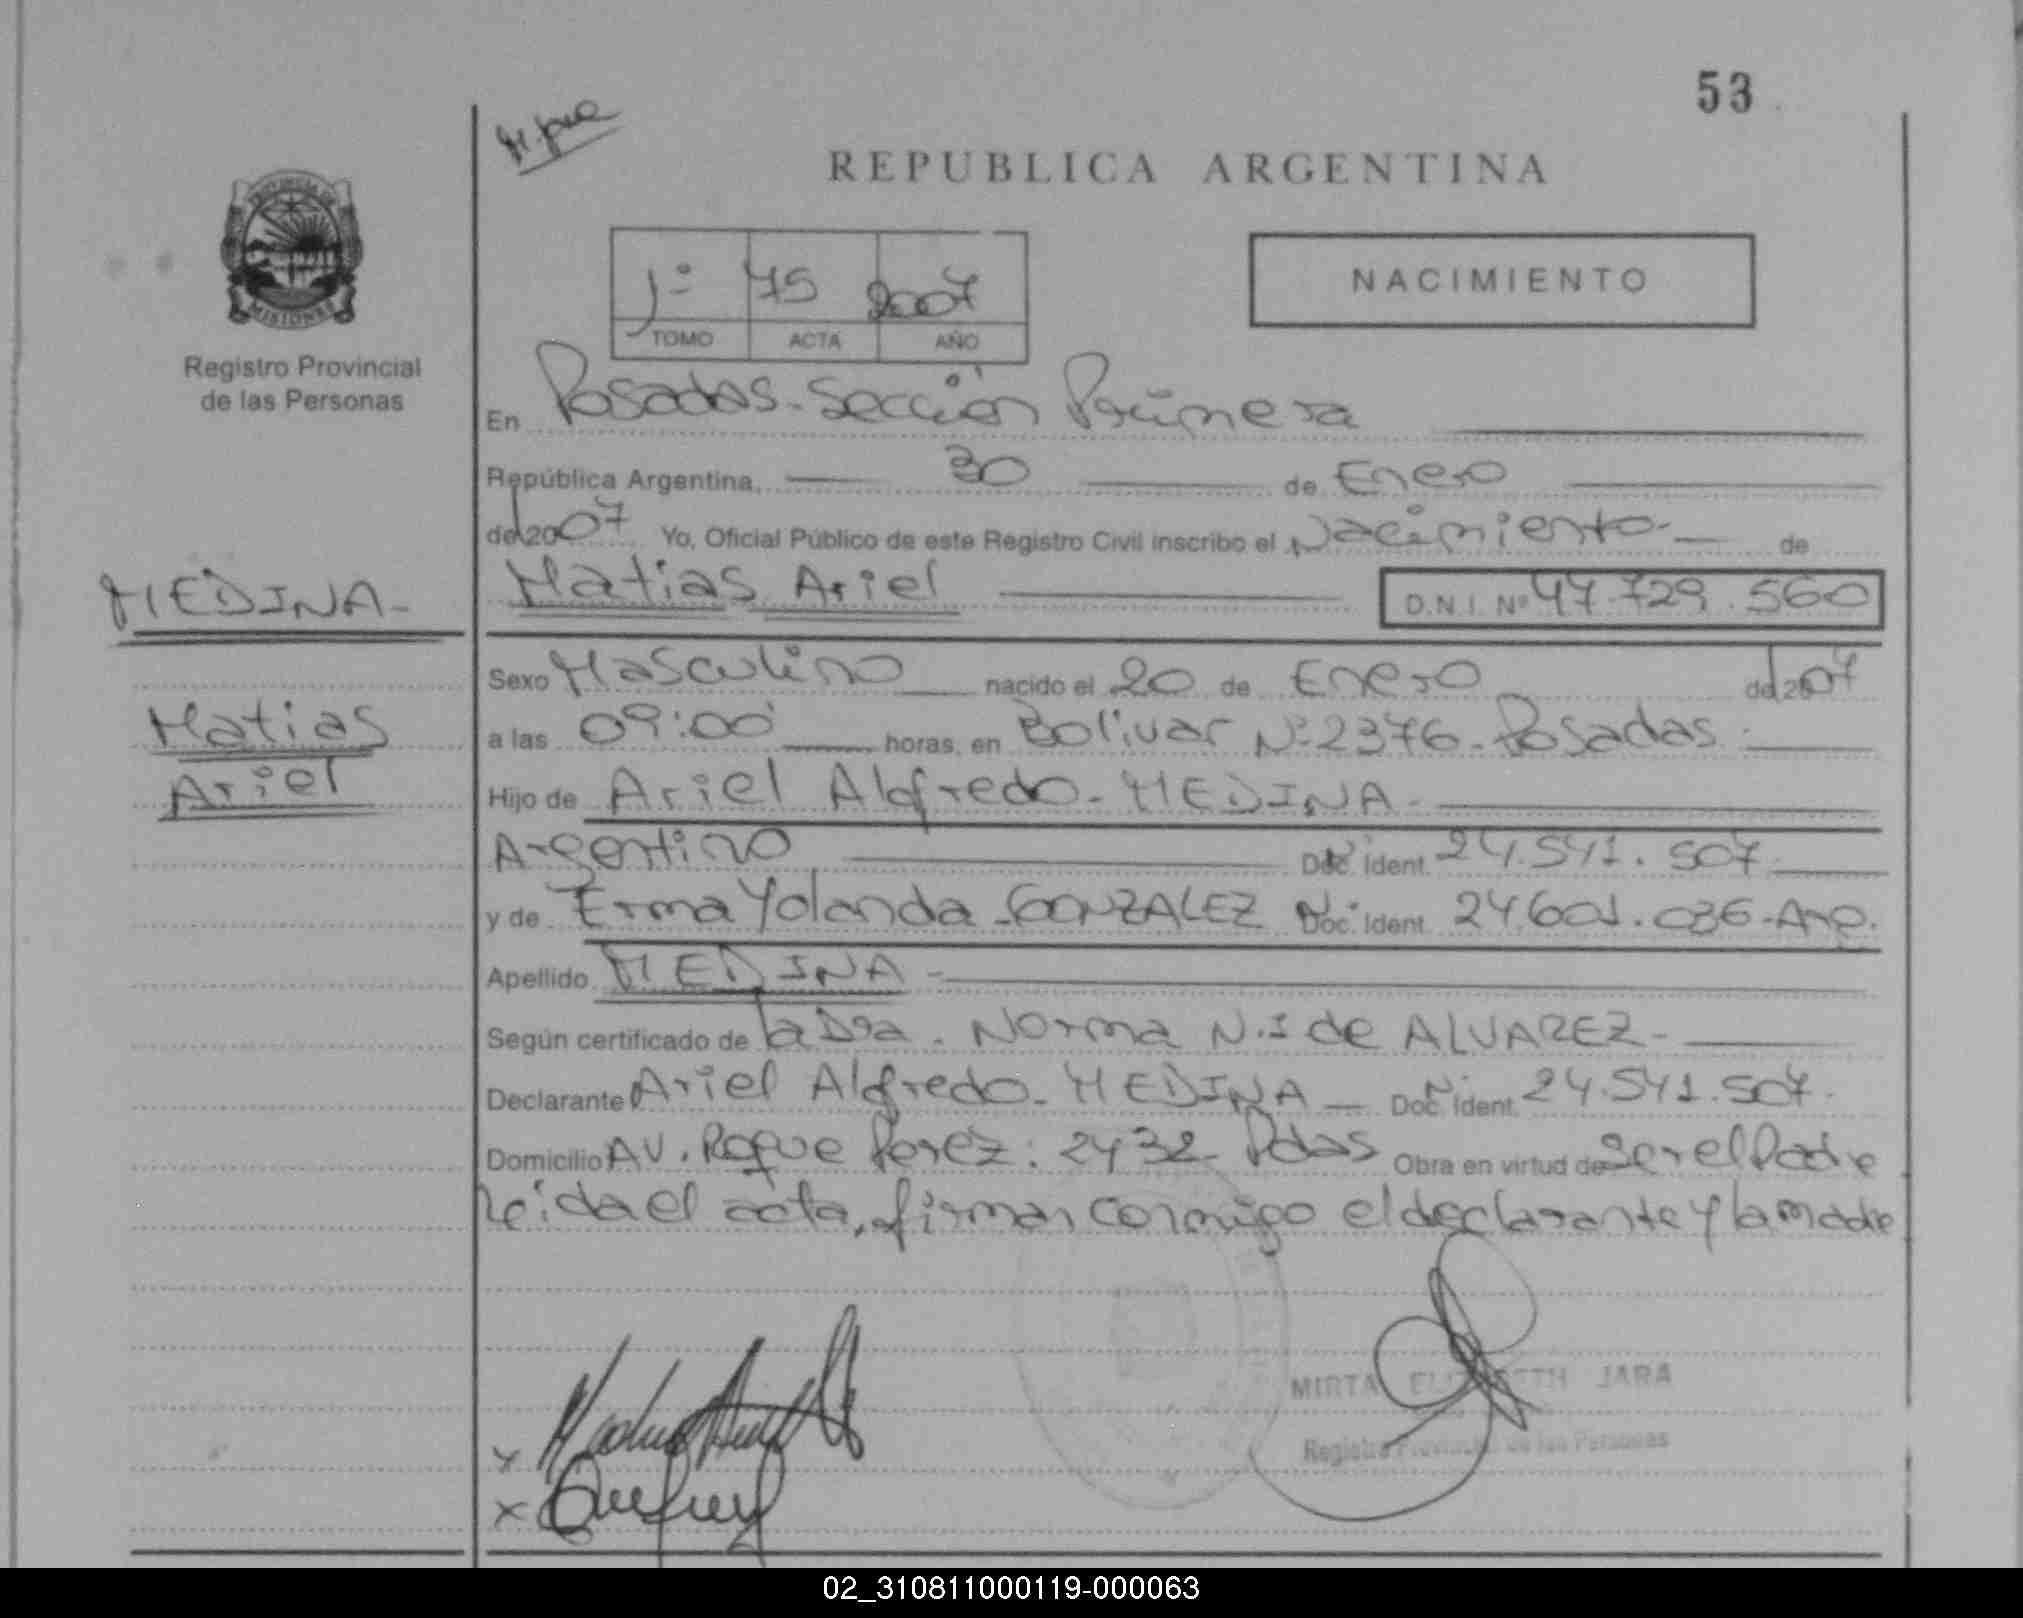 53
REPUBLICA ARGENTINA
PROVINCIA DE
MISIONES
Registro Provincial
de las Personas
1º 75 2007
TOMO ACTA AÑO
NACIMIENTO
En Posadas - Sección Primera
República Argentina, 30 de Enero
del 2007 Yo, Oficial Público de este Registro Civil inscribo el Nacimiento - de
MEDINA -
Matias Ariel D.N.I. Nº 47.729.560
Sexo Masculino nacido el 20 de Enero del 2007
Matias
a las 09:00 horas, en Bolivar Nº 2376 - Posadas
Ariel
Hijo de Ariel Alfredo - MEDINA -
Argentino Doc. Ident. 24.541.507
y de Erma Yolanda - GONZALEZ Doc. Ident. 24.601.036 - Arg.
Apellido MEDINA -
Según certificado de la Dra. Norma N. I de ALVAREZ -
Declarante Ariel Alfredo - MEDINA - Doc. Ident. 24.541.507.
Domicilio AV. Roque Perez: 2432 Pdas Obra en virtud de Ser el Padre
leida el acta, firman conmigo el declarante y la madre
MIRTA ELIZABETH JARA
Registro Provincial de las Personas
x
x
02_310811000119-000063